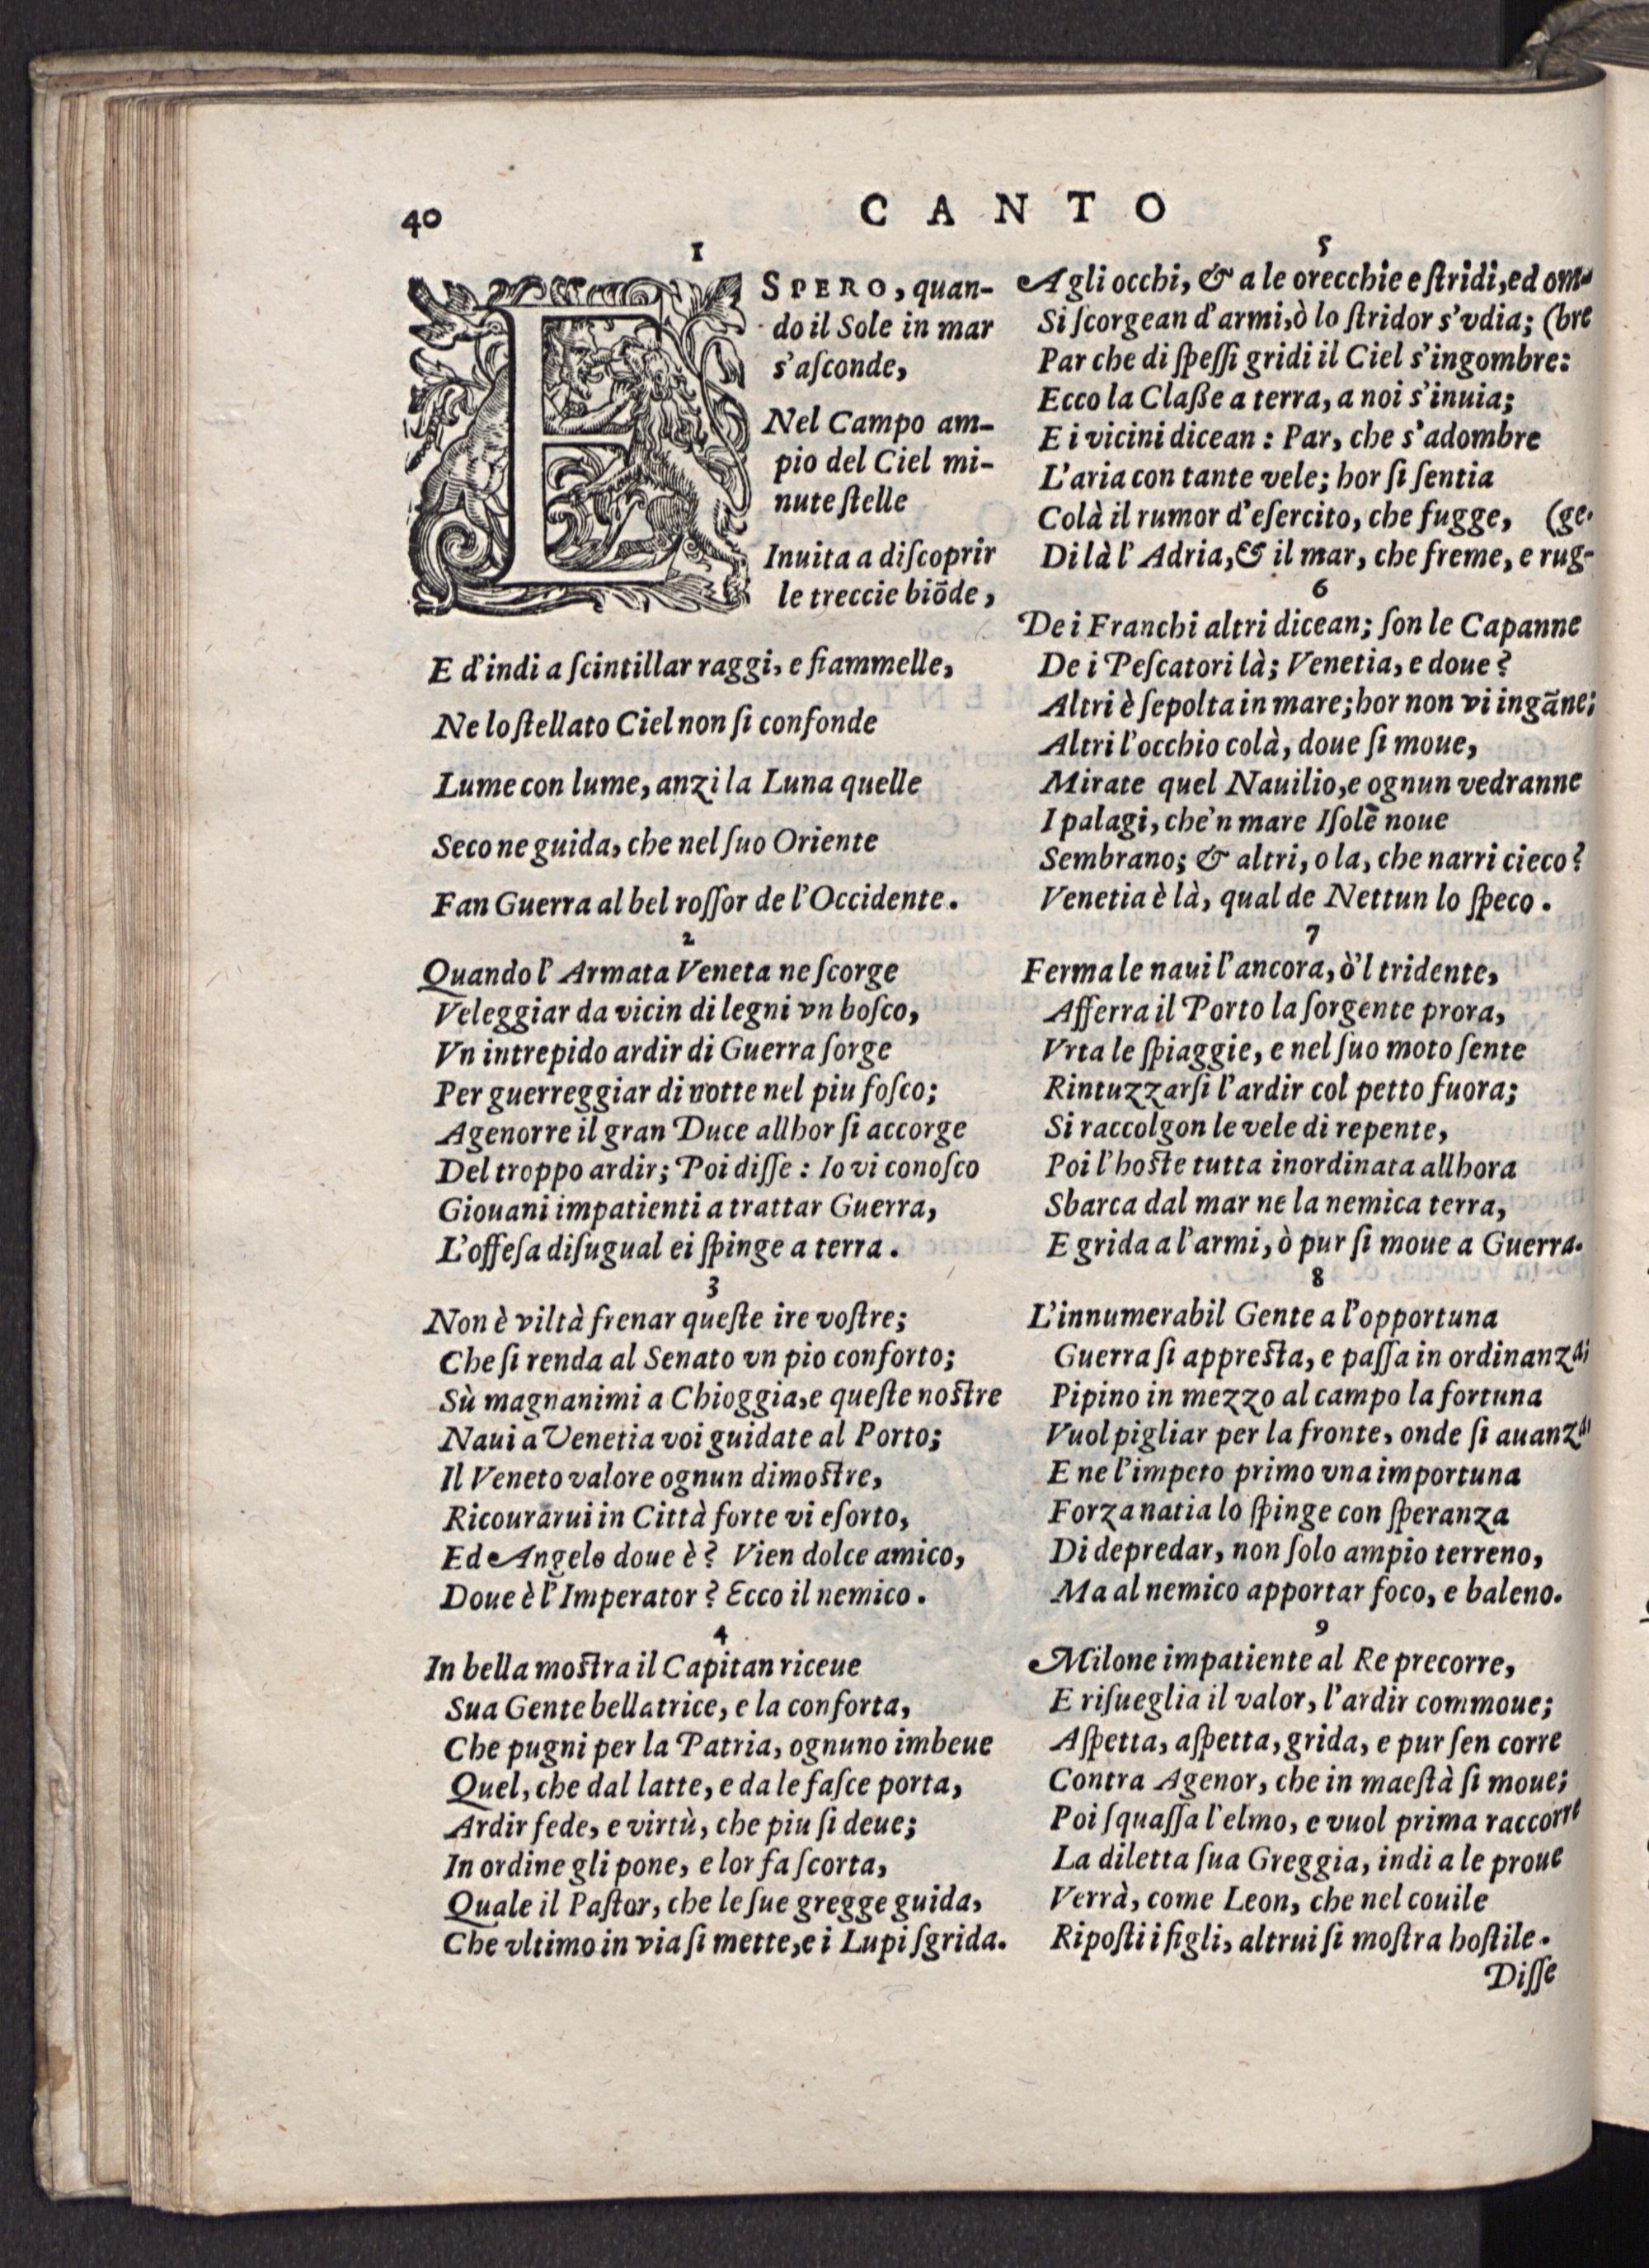 40
CANTO
1
ESPERO, quan-
do il Sole in mar
s'aſconde,
Nel Campo am-
pio del Ciel mi-
nute ſtelle
Inuita a diſcoprir
le treccie biōde,
E d'indi a ſcintillar raggi, e fiammelle,
Ne lo ſtellato Ciel non ſi confonde
Lume con lume, anzi la Luna quelle
Seco ne guida, che nel ſuo Oriente
Fan Guerra al bel roſſor de l'Occidente.
2
Quando l'Armata Veneta ne ſcorge
Veleggiar da vicin di legni vn boſco,
Vn intrepido ardir di Guerra ſorge
Per guerreggiar di notte nel piu foſco;
Agenorre il gran Duce allhor ſi accorge
Del troppo ardir; Poi diſſe: Io vi conoſco
Giouani impatienti a trattar Guerra,
L'offeſa diſugual ei ſpinge a terra.
3
Non è viltà frenar queſte ire voſtre;
Che ſi renda al Senato vn pio conforto;
Sù magnanimi a Chioggia, e queſte noſtre
Naui a Venetia voi guidate al Porto;
Il Veneto valore ognun dimoſtre,
Ricourarui in Città forte vi eſorto,
Ed Angelo doue è? Vien dolce amico,
Doue è l'Imperator? Ecco il nemico.
4
In bella moſtra il Capitan riceue
Sua Gente bellatrice, e la conforta,
Che pugni per la Patria, ognuno imbeue
Quel, che dal latte, e da le faſce porta,
Ardir fede, e virtù, che piu ſi deue;
In ordine gli pone, e lor fa ſcorta,
Quale il Paſtor, che le ſue gregge guida,
Che vltimo in via ſi mette, e i Lupi ſgrida.
5
A gli occhi, & a le orecchie e ſtridi, ed om-
Si ſcorgean d'armi, ò lo ſtridor s'vdia; (bre
Par che di ſpeſſi gridi il Ciel s'ingombre:
Ecco la Claße a terra, a noi s'inuia;
E i vicini dicean: Par, che s'adombre
L'aria con tante vele; hor ſi ſentia
Colà il rumor d'eſercito, che fugge, (ge.
Di là l'Adria, & il mar, che freme, e rug-
6
De i Franchi altri dicean; ſon le Capanne
De i Peſcatori là; Venetia, e doue?
Altri è ſepolta in mare; hor non vi ingāne;
Altri l'occhio colà, doue ſi moue,
Mirate quel Nauilio, e ognun vedranne
I palagi, che'n mare Iſole noue
Sembrano; & altri, o la, che narri cieco?
Venetia è là, qual de Nettun lo ſpeco.
7
Ferma le naui l'ancora, ò'l tridente,
Afferra il Porto la ſorgente prora,
Vrta le ſpiaggie, e nel ſuo moto ſente
Rintuzzarſi l'ardir col petto fuora;
Si raccolgon le vele di repente,
Poi l'hoſte tutta inordinata allhora
Sbarca dal mar ne la nemica terra,
E grida a l'armi, ò pur ſi moue a Guerra.
8
L'innumerabil Gente a l'opportuna
Guerra ſi appreſta, e paſſa in ordinanza;
Pipino in mezzo al campo la fortuna
Vuol pigliar per la fronte, onde ſi auanza
E ne l'impeto primo vna importuna
Forza natia lo ſpinge con ſperanza
Di depredar, non ſolo ampio terreno,
Ma al nemico apportar foco, e baleno.
9
Milone impatiente al Re precorre,
E riſueglia il valor, l'ardir commoue;
Aſpetta, aſpetta, grida, e pur ſen corre
Contra Agenor, che in maeſtà ſi moue;
Poi ſquaſſa l'elmo, e vuol prima raccorre
La diletta ſua Greggia, indi a le proue
Verrà, come Leon, che nel couile
Ripoſti i figli, altrui ſi moſtra hoſtile.
Diſſe